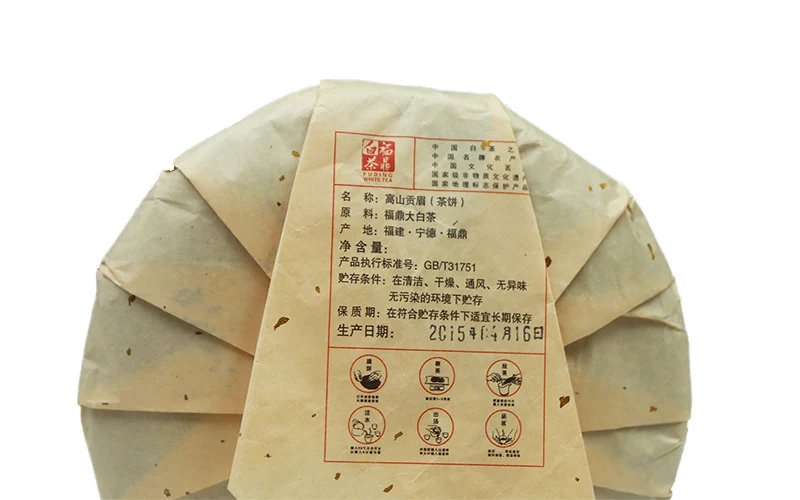 福鼎
白茶
FUDING
WHITE TEA
中国白茶之
中国名牌农产
中国文化茗
国家级非物质文化遗产
国家地理标志保护产品
名 称：高山贡眉（茶饼）
原 料：福鼎大白茶
产 地：福建·宁德·福鼎
净含量：
产品执行标准号：GB/T31751
贮存条件：在清洁、干燥、通风、无异味
无污染的环境下贮存
保 质 期：在符合贮存条件下适宜长期保存
生产日期：
2015年04月16日
撬饼
茶
投茶
注水
出汤
品茗